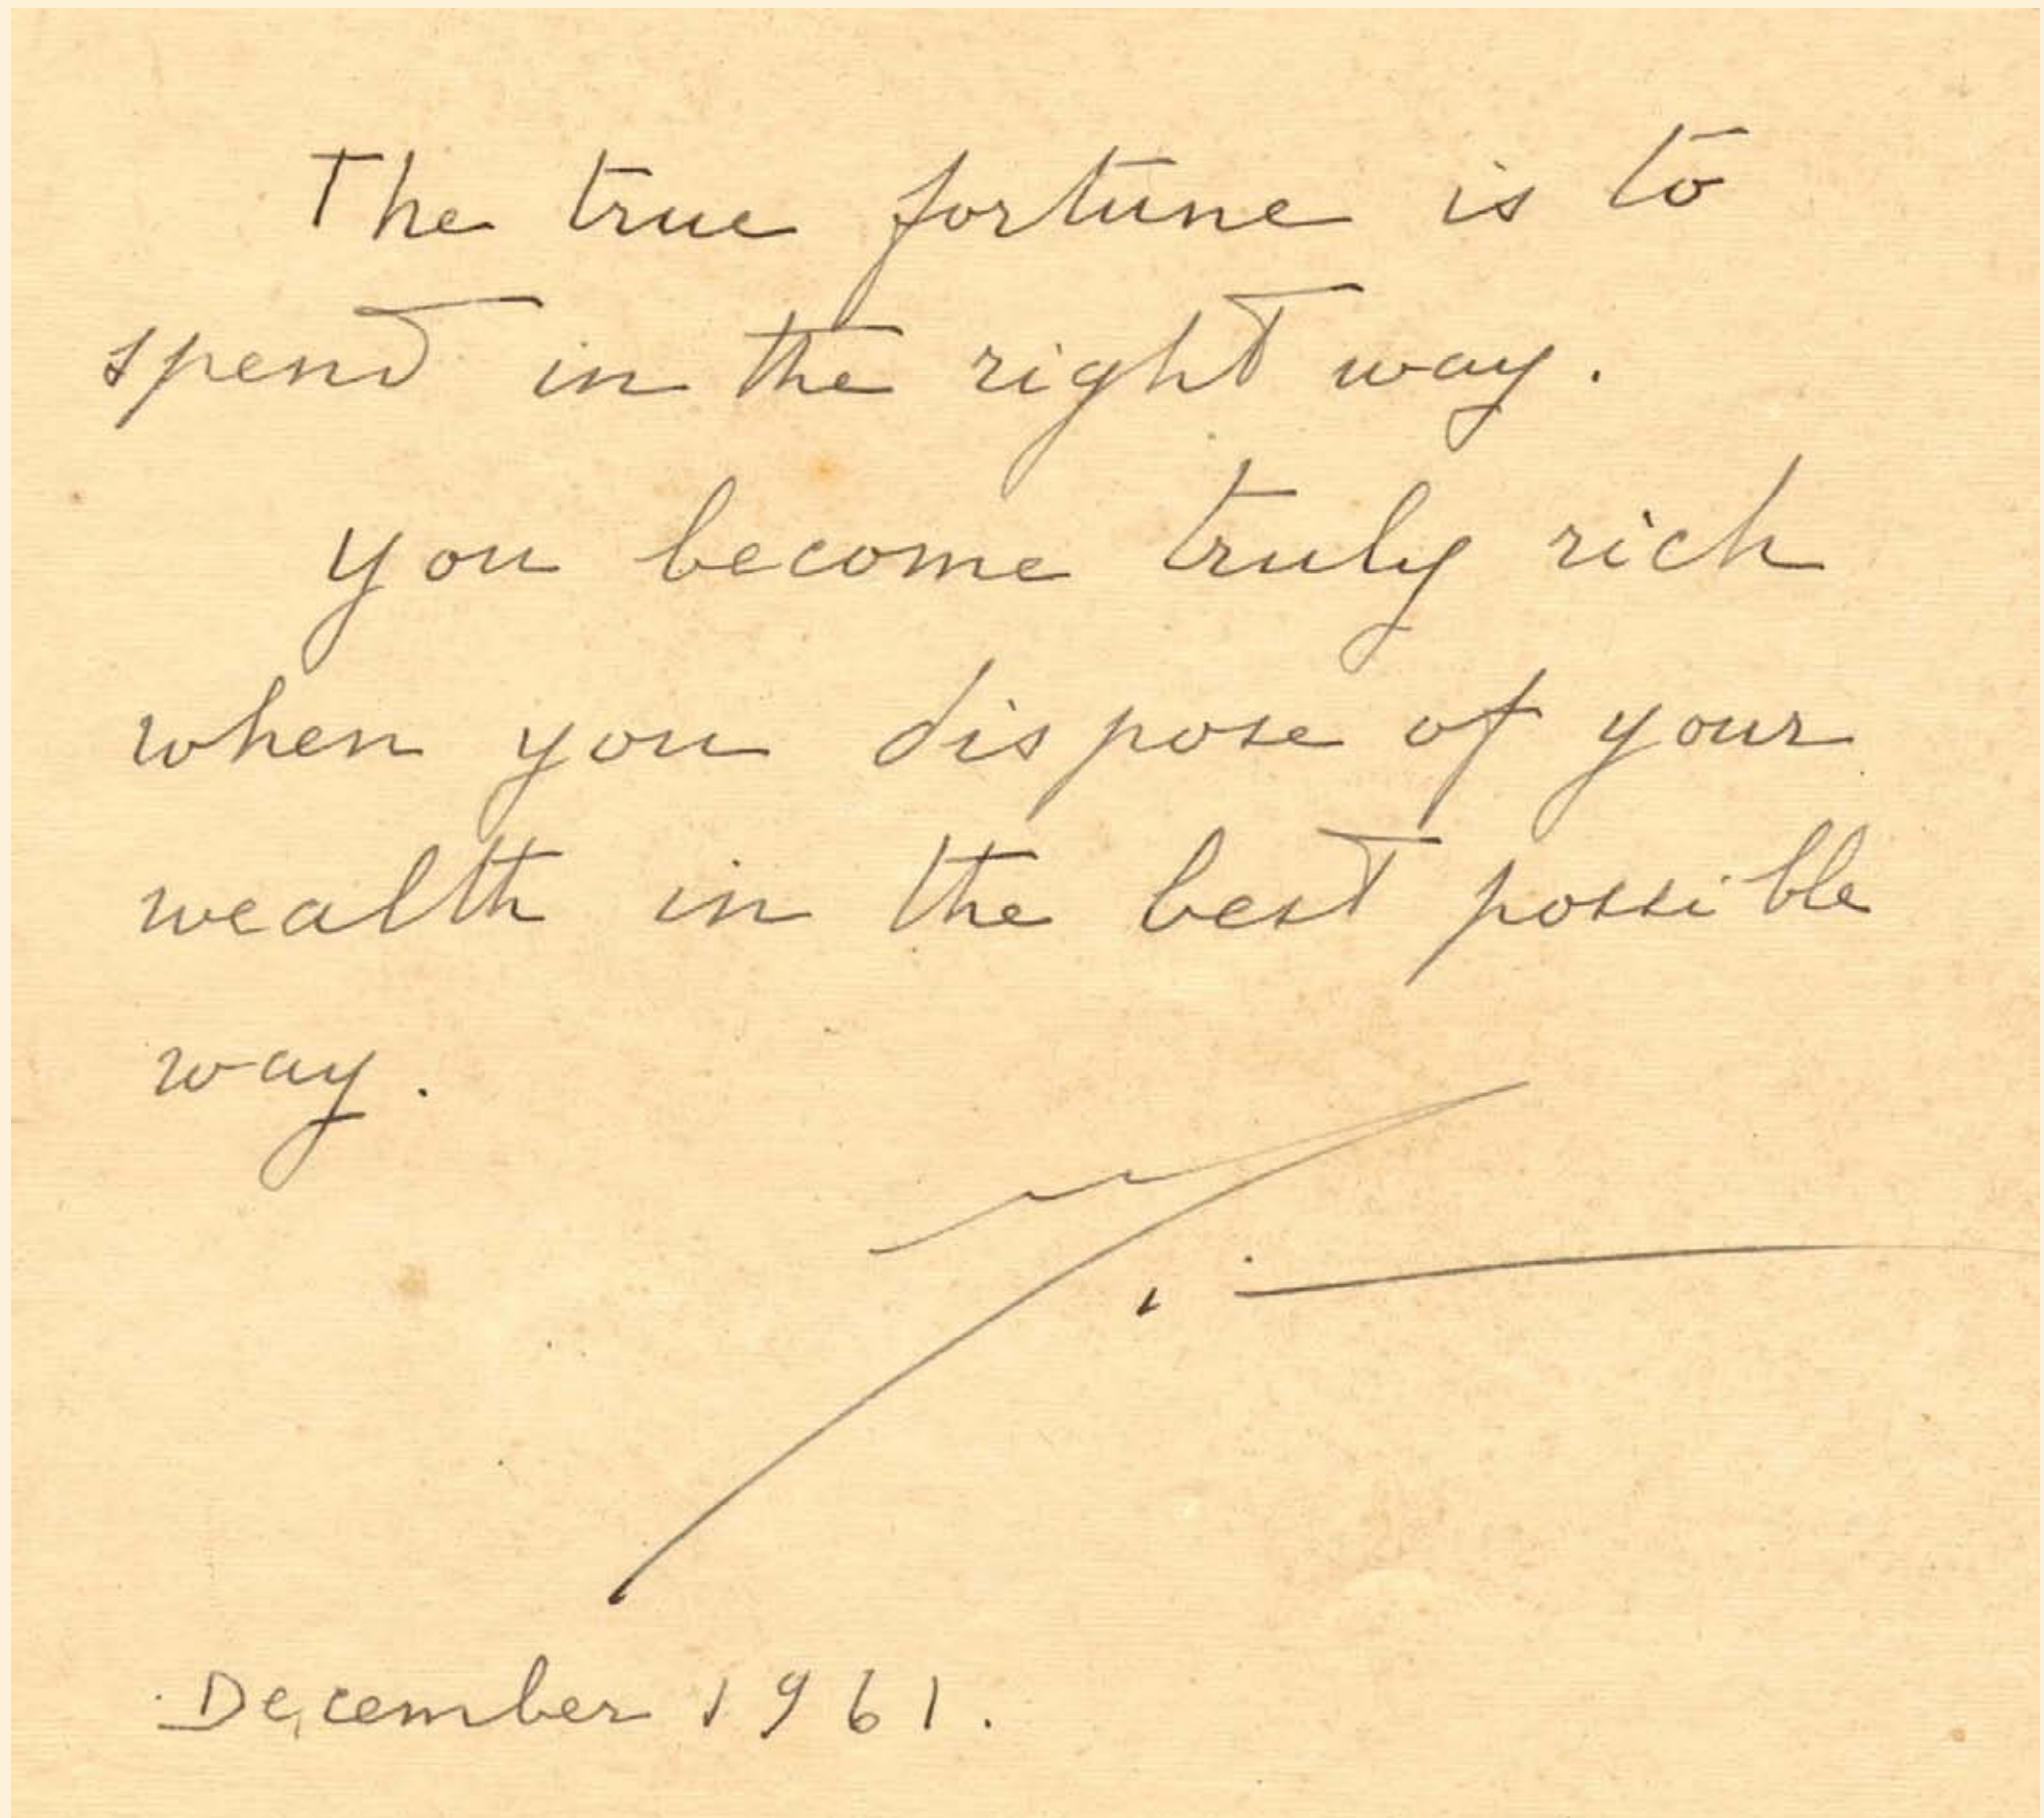 The true fortune is to
spend in the right way.
you become truly rich
when you dispose of your
wealth in the best possible
way.
December 1961.